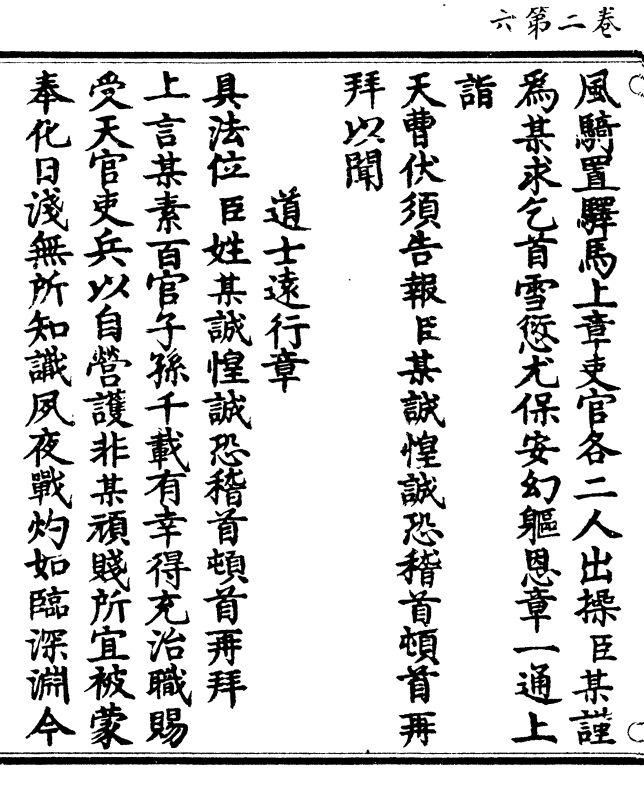 卷二第六
風騎置驛馬上章吏官各二人出操臣某謹
為某求乞首雪愆尤保安幻軀恩章一通上
詣
天曹伏須告報臣某誠惶誠恐稽首頓首再
拜以聞
道士遠行章
具法位臣姓某誠惶誠恐稽首頓首再拜
上言某素百官子孫千載有幸得充治職賜
受天官吏兵以自營護非某頑賤所宜被蒙
奉化日淺無所知識夙夜戰灼如臨深淵今